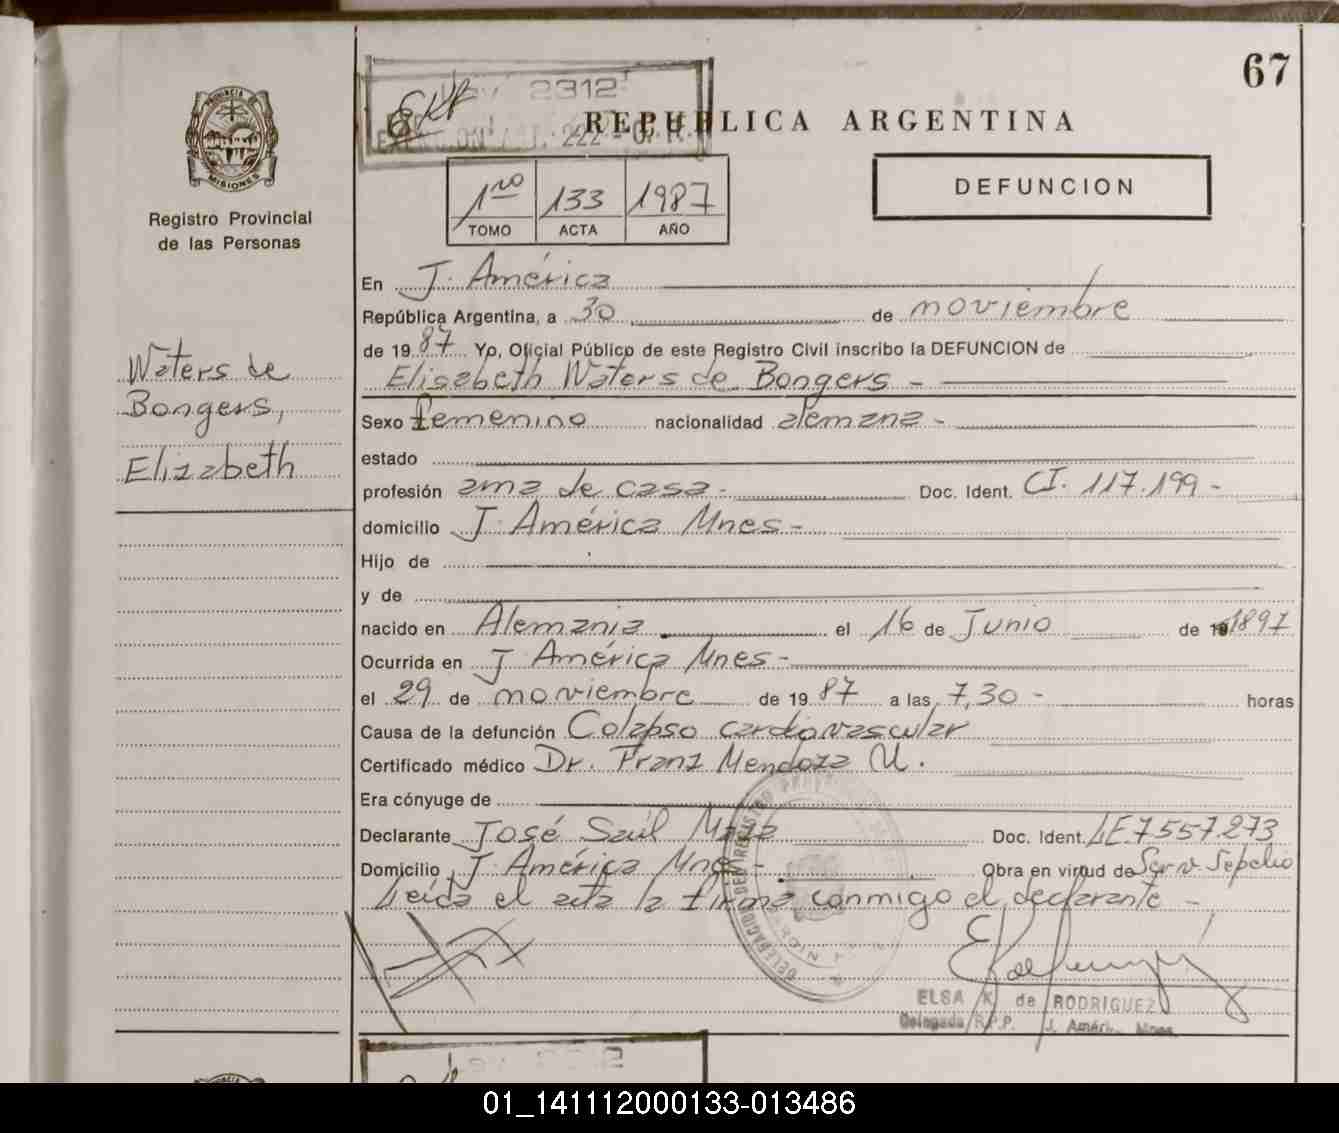 67
Ley 2312
REPUBLICA ARGENTINA
PROVINCIA DE
MISIONES
Registro Provincial
de las Personas
1ro 133 1987
TOMO ACTA AÑO
DEFUNCION
Waters de
Bongers,
Elizabeth
En J. América
República Argentina, a 30 de noviembre
de 1987 Yo, Oficial Público de este Registro Civil inscribo la DEFUNCION de
Elisabeth Waters de Bongers -
Sexo femenino nacionalidad alemana -
estado
profesión ama de casa - Doc. Ident. CI. 117.199 -
domicilio J. América Mnes -
Hijo de
y de
nacido en Alemania el 16 de Junio de 19 1897
Ocurrida en J América Mnes -
el 29 de noviembre de 1987 a las 7,30 - horas
Causa de la defunción Colapso cardiovascular
Certificado médico Dr. Franz Mendoza U.
Era cónyuge de
Declarante José Saúl Maza Doc. Ident. LE 7557.273
Domicilio J. América Mnes - Obra en virtud de Serv. Sepelio
Leída el acta la firma conmigo el declarante -
ELSA K. de RODRIGUEZ
Delegada R.P.P. J. Améri. Mnes
01_141112000133-013486